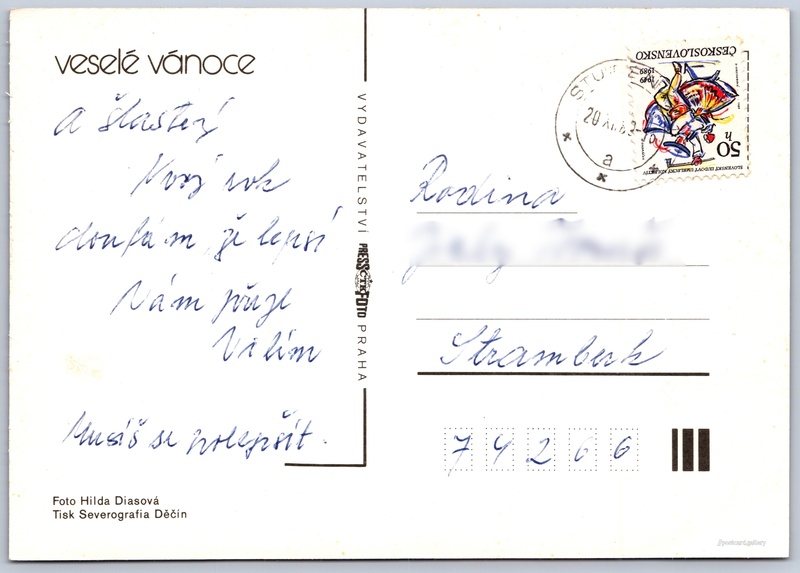 veselé vánoce
a šťastný
Nový rok
doufám, že lepší
Vám přeje
Vilím
Musíš se polepšit.
Foto Hilda Diasová
Tisk Severografia Děčín
VYDAVATELSTVÍ PRESSFOTO PRAHA
ČTK
ČESKOSLOVENSKO
1949
1989
50 h
a
Rodina
Stramberk
74266